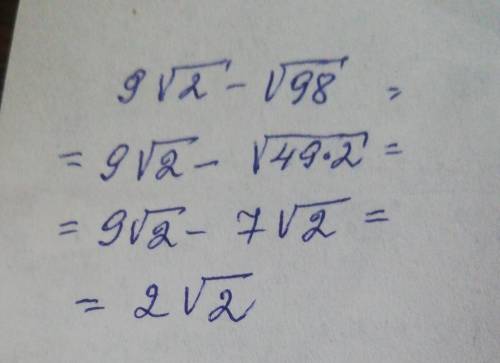 9√2 - √98 =
= 9√2 - √49·2 =
= 9√2 - 7√2 =
= 2√2